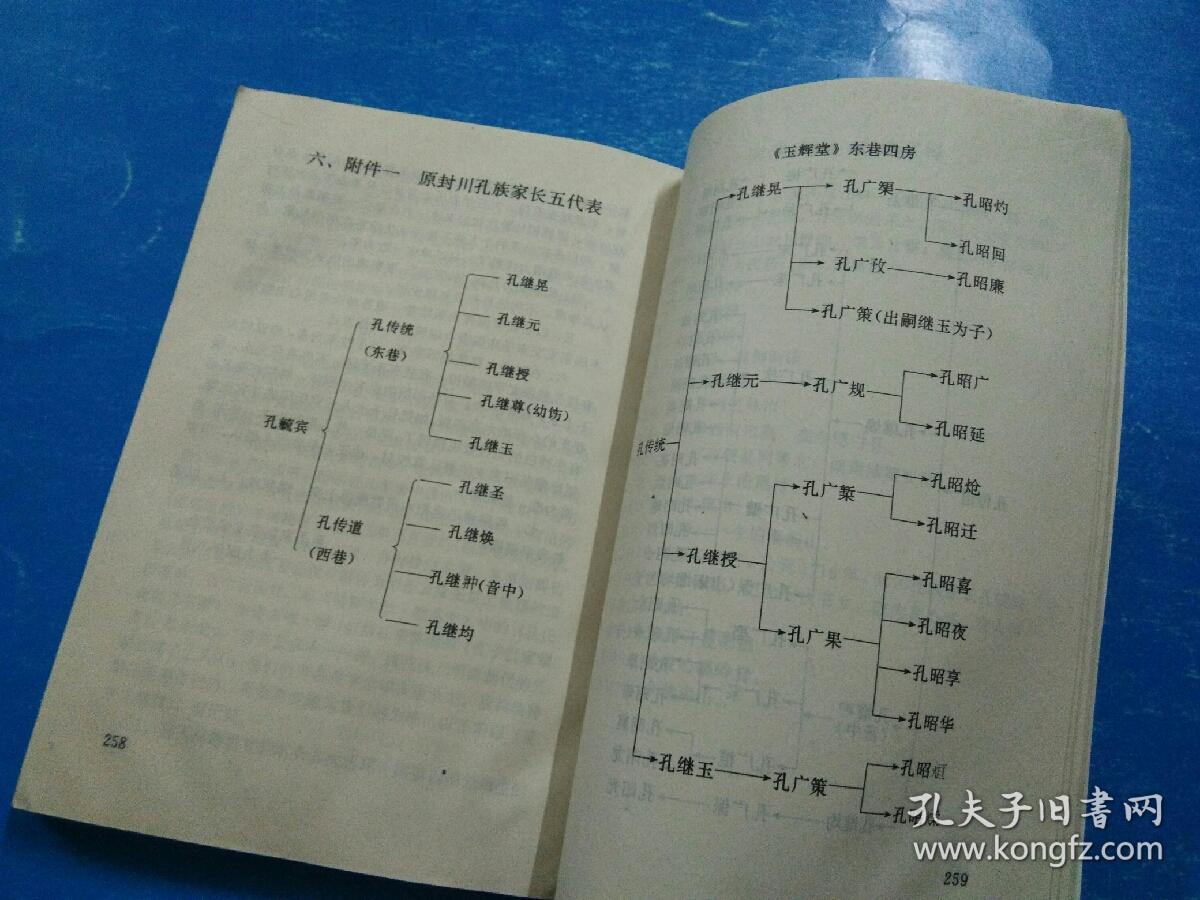 六、附件一 原封川孔族家长五代表
孔继晃
孔传统
孔继元
(东巷)
孔继授
孔继尊(幼伤)
孔毓宾
孔继玉
孔继圣
孔传道
孔继焕
(西巷)
孔继翀(音中)
孔继均
258
《玉辉堂》东巷四房
孔继晃
孔广渠
孔昭灼
孔昭回
孔广孜
孔昭廉
孔广策(出嗣继玉为子)
孔继元
孔广规
孔昭广
孔昭延
孔传统
孔广椠
孔昭炝
孔昭迁
孔继授
孔昭喜
孔昭夜
孔广果
孔昭享
孔昭华
孔继玉
孔广策
孔昭烜
259
孔夫子旧书网
www.kongfz.com